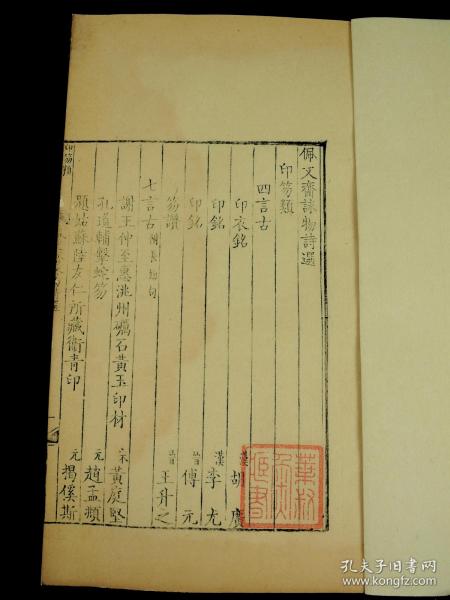 佩文齋詠物詩選
印笏類
四言古
印衣銘 漢 胡廣
印銘 漢 李尤
印銘 晉 傅元
笏讚 晉 王升之
七言古 附長短句
謝王仲至惠洮州礪石黃玉印材 宋 黃庭堅
孔道輔擊蛇笏 元 趙孟頫
題姑蘇陸友仁所藏衛青印 元 揭傒斯
印笏類
孔夫子旧书网